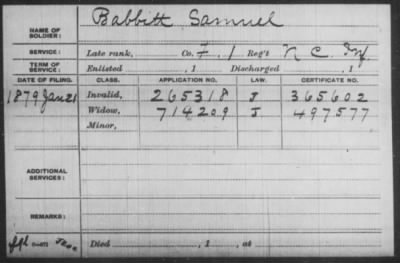 NAME OF SOLDIER: Babbitt Samuel
SERVICE: Late rank, Co. F, 1 Reg't N C Inf
TERM OF SERVICE: Enlisted , 1 Discharged , 1
DATE OF FILING. CLASS. APPLICATION NO. LAW. CERTIFICATE NO.
1879 Jan 21 Invalid, 265318 J 365602
Widow, 714209 J 497577
Minor,
ADDITIONAL SERVICES:
REMARKS:
Died , 1 , at